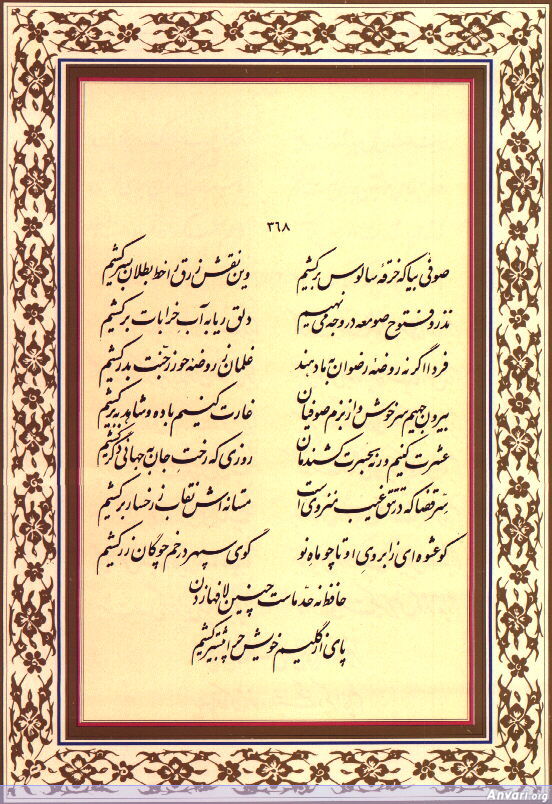 ۳۶۸
صوفی بیا که خرقهٔ سالوس برکشیم وین نقش زرق را خط بطلان بسر کشیم
نذر و فتوح صومعه در وجه می نهیم دلق ریا به آب خرابات برکشیم
فردا اگر نه روضهٔ رضوان بما دهند غلمان ز روضه حور ز جنت بدر کشیم
بیرون جهیم سرخوش و از بزم صوفیان غارت کنیم باده و شاهد به بر کشیم
عشرت کنیم ورنه بحسرت کشندمان روزی که رخت جان به جهانی دگر کشیم
سرّ قضا که در تتق غیب منزوی است مستانه اش نقاب ز رخسار برکشیم
کو عشوه ای ز ابروی او تا چو ماه نو گوی سپهر در خم چوگان زر کشیم
حافظ نه حد ماست چنین لافها زدن
پای از گلیم خویش چرا بیشتر کشیم
Anvari.org